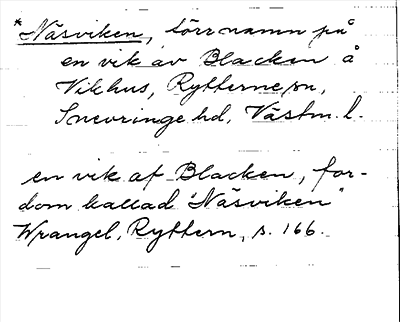 *Näsviken, törr namn på
en vik av Blacken å
Vikhus, Rytterne sn,
Snevringe hd, Västm. l.
en vik af Blacken, for-
dom kallad "Näsviken"
Wrangel, Ryttern, s. 166.